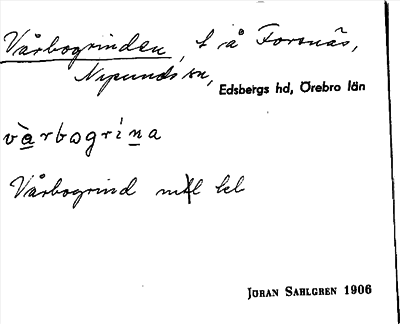 Vårbogrinden, t å Forsnäs,
Nysunds sn, Edsbergs hd, Örebro län
và̱rbωgrìṉa
Vårbogrind mfl bl
JÖRAN SAHLGREN 1906